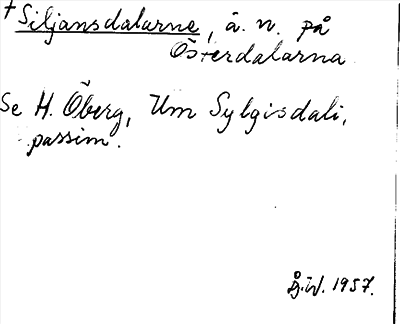 † Siljansdalarne, ä. n. på
Österdalarna
Se H. Öberg, Um Sylgisdali,
passim.
1957.